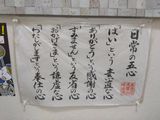 日常の五心
「はい」という素直な心
「ありがとう」という感謝の心
「すみません」という反省の心
「おかげさま」という謙虚な心
「わたしがします」という奉仕の心